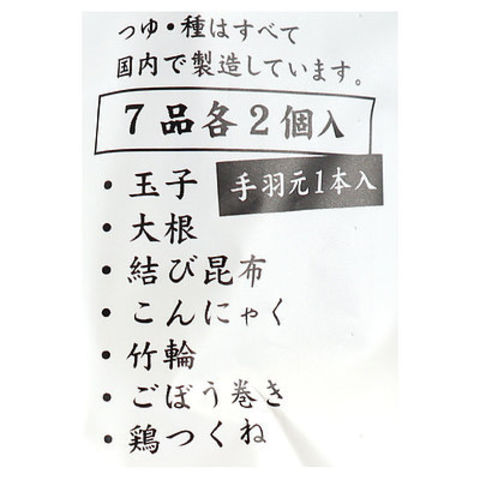 つゆ・種はすべて
国内で製造しています。
7品各2個入
・玉子
手羽元1本入
・大根
・結び昆布
・こんにゃく
・竹輪
・ごぼう巻き
・鶏つくね